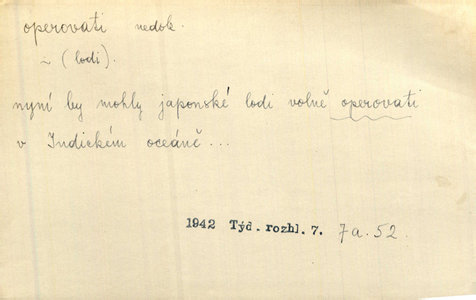 operovati nedok.
~ (lodi).
nyní by mohly japonské lodi volně operovati
v Indickém oceáně...
1942 Týd. rozhl. 7. 7a. 52.